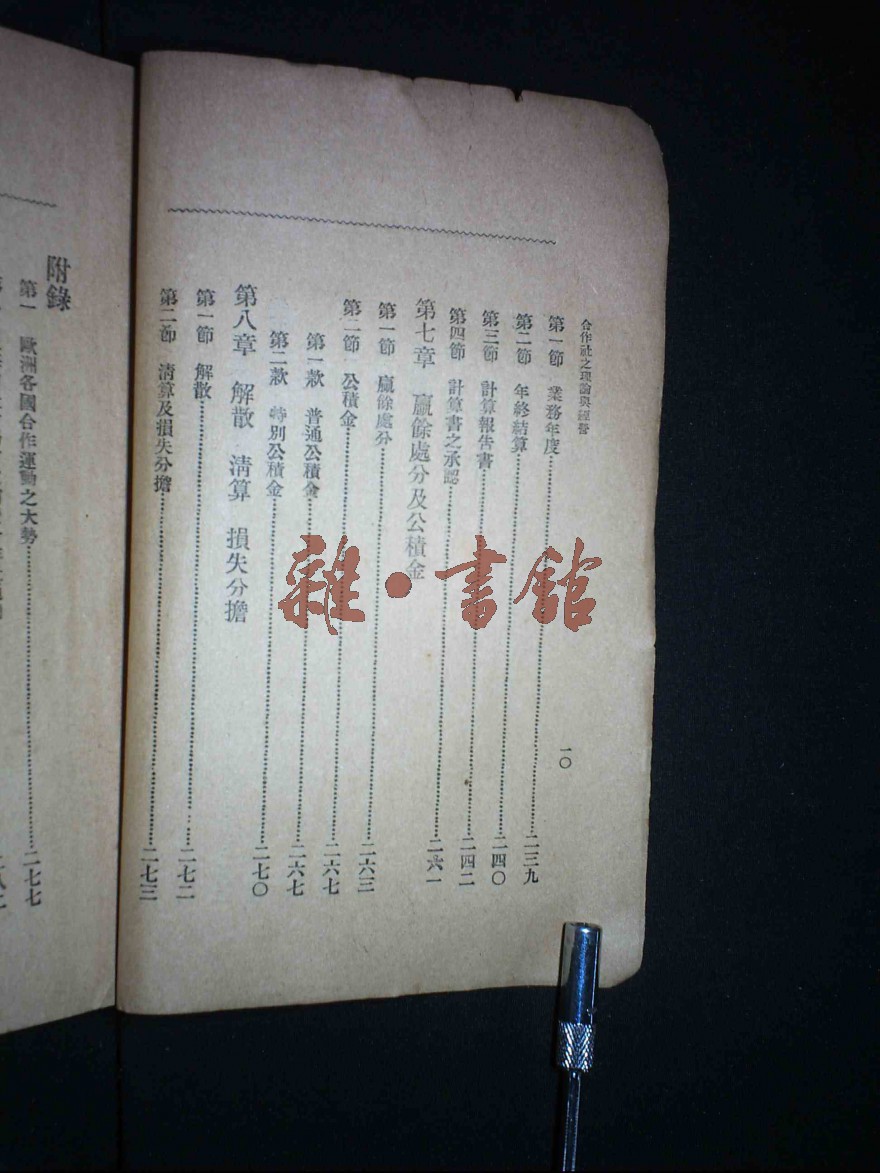 合作社之理論與經營
一〇
第一節 業務年度……二三九
第二節 年終結算……二四〇
第三節 計算報告書……二四二
第四節 計算書之承認……二六一
第七章 贏餘處分及公積金
第一節 贏餘處分……二六三
第二節 公積金……二六七
第一款 普通公積金……二六七
第二款 特別公積金……二七〇
第八章 解散 清算 損失分擔
第一節 解散……二七二
第二節 清算及損失分擔……二七三
附錄
第一 歐洲各國合作運動之大勢……二七七
雜·書館